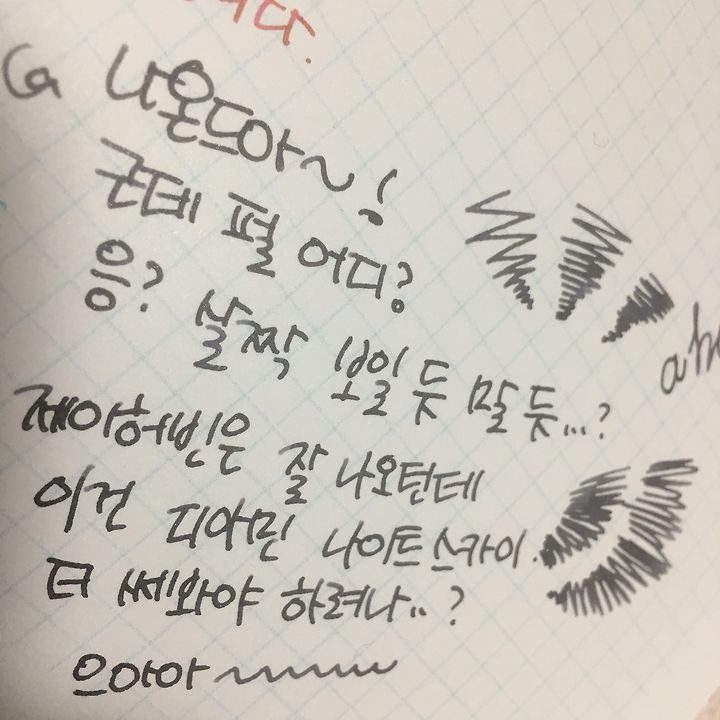 다.
G 나온드아~!
근데 펄 어디?
응? 살짝 보일 듯 말 듯...?
제이허빈은 잘 나오턴데
이건 디아민 나이트 스카이.
더 쎄와야 하려나..?
으아아~